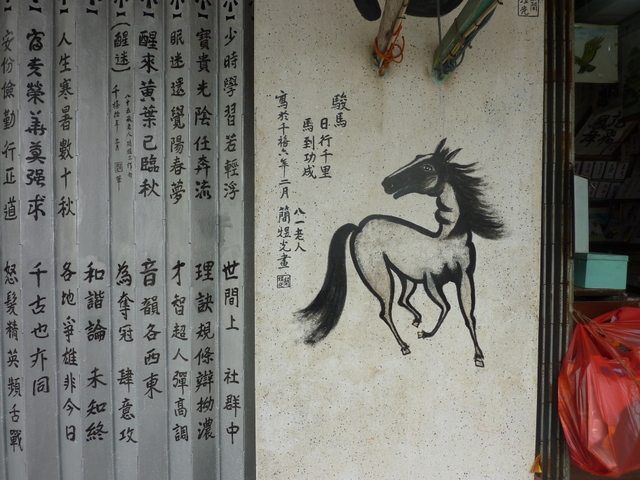 駿馬
日行千里
馬到功成
寫於千禧六年二月
八一老人
簡煜光畫
少時學習若輕浮
寶貴光陰任奔流
眠迷還覺陽春夢
醒來黃葉已臨秋
(醒迷)
人生寒暑數十秋
富貴榮華莫强求
安份儉勤行正道
世間上 社群中
理訣規條辯拗濃
才智超人彈高調
音韻各西東
為奪冠 肆意攻
和諧論 未知終
各地爭雄非今日
千古也亦同
怒髮精英頻舌戰